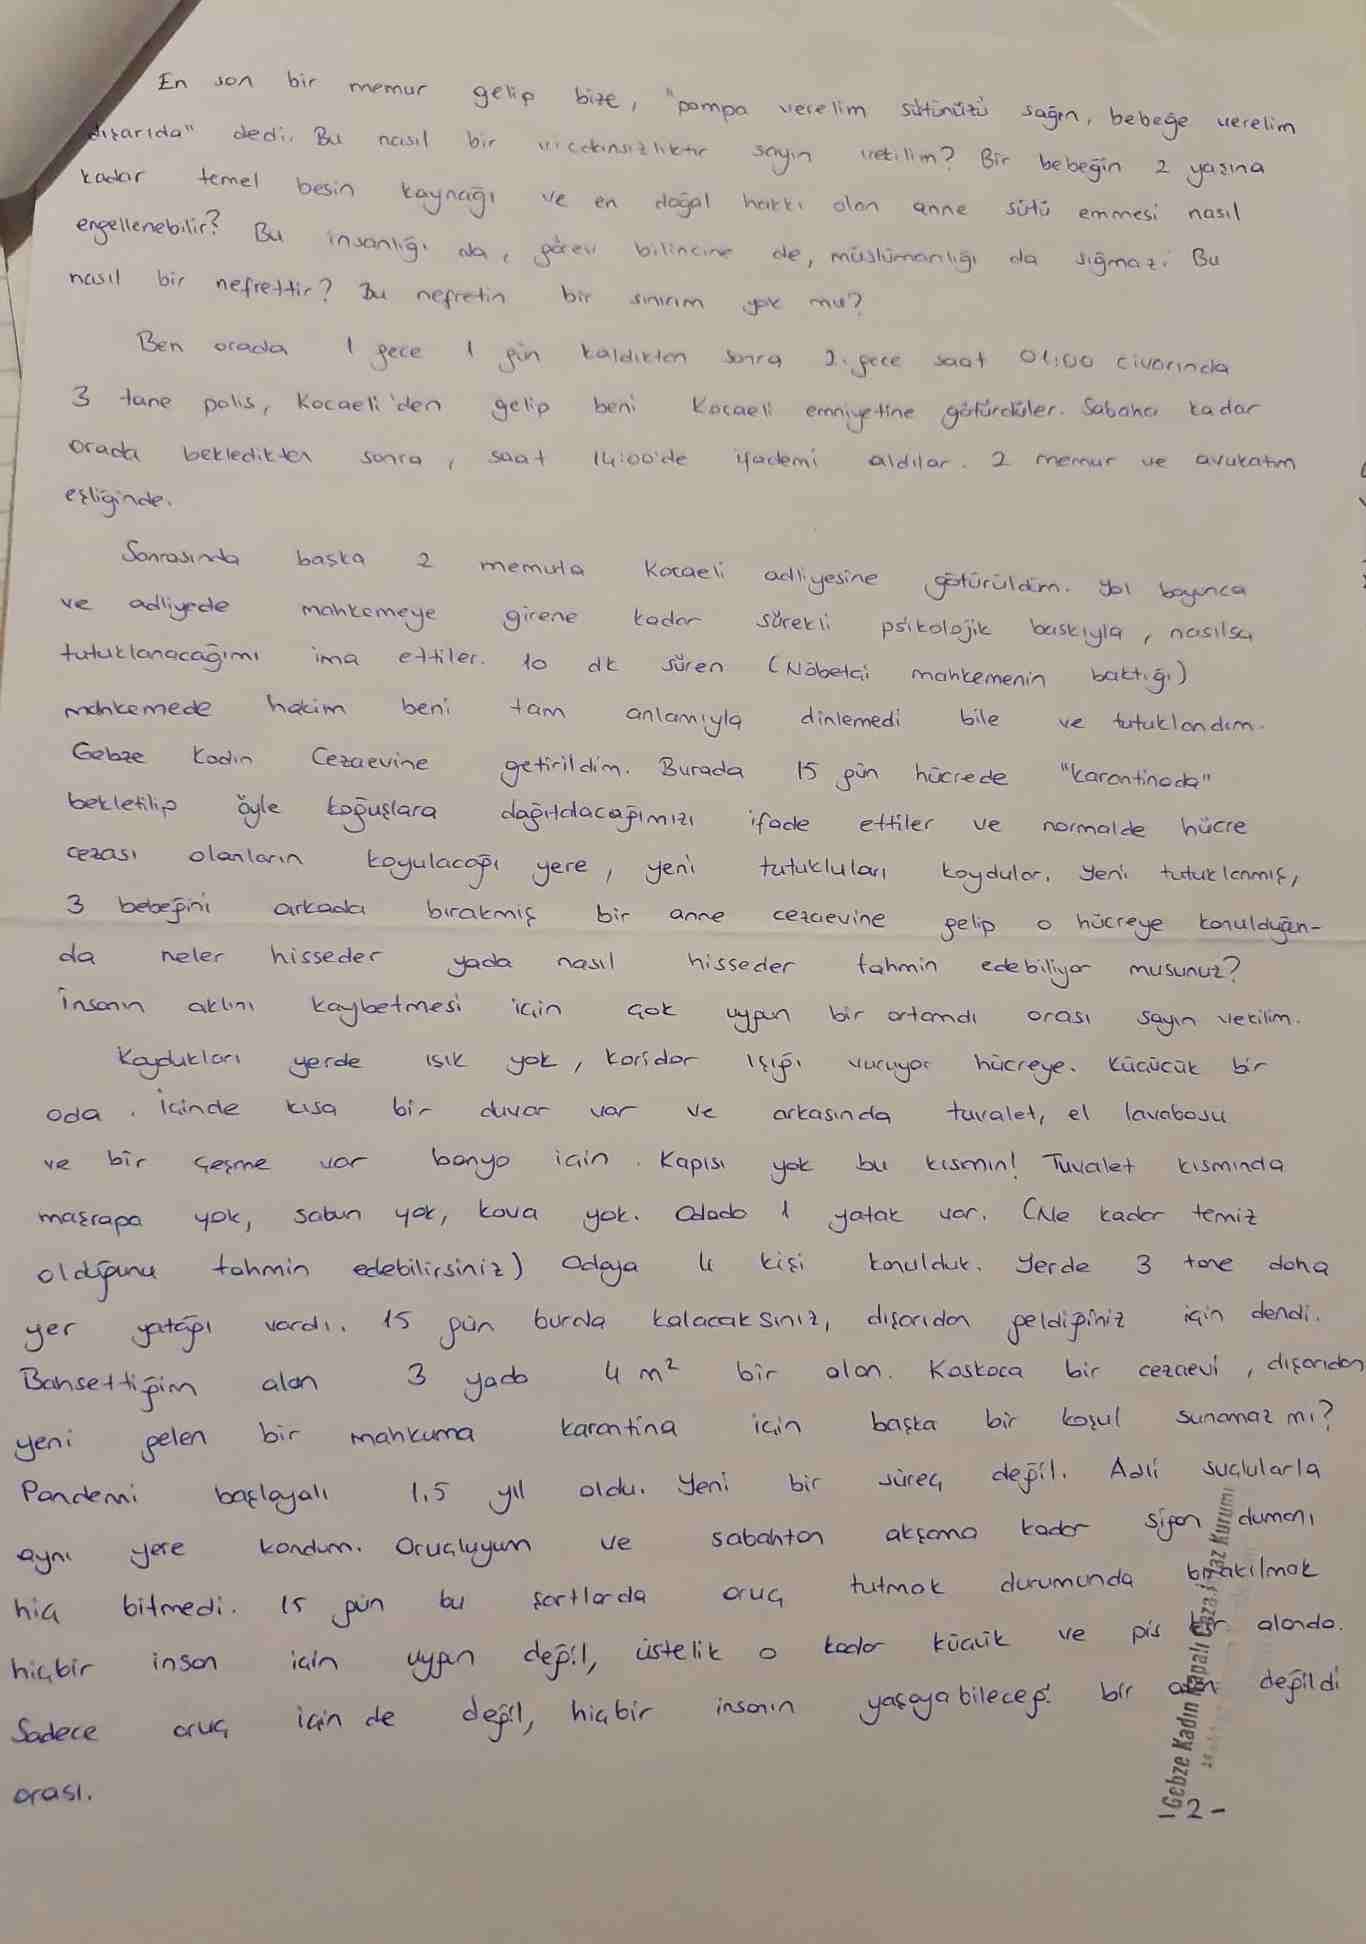 En son bir memur gelip bize, "pompa verelim sütünüzü sağın, bebeğe verelim
dışarıda" dedi. Bu nasıl bir vicdansızlıktır sayın vekilim? Bir bebeğin 2 yaşına
kadar temel besin kaynağı ve en doğal hakkı olan anne sütü emmesi nasıl
engellenebilir? Bu insanlığa da, görev bilincine de, müslümanlığı da sığmaz! Bu
nasıl bir nefrettir? Bu nefretin bir sınırım yok mu?
Ben orada 1 gece 1 gün kaldıkten sonra 2. gece saat 01:00 civarında
3 tane polis, Kocaeli'den gelip beni Kocaeli emniyetine götürdüler. Sabaha kadar
orada bekledikten sonra, saat 14:00'de ifademi aldılar. 2 memur ve avukatım
eşliğinde.
Sonrasında başka 2 memurla Kocaeli adliyesine götürüldüm. Yol boyunca
ve adliyede mahkemeye girene kadar sürekli psikolojik baskıyla, nasılsa
tutuklanacağımı ima ettiler. 10 dk süren (Nöbetçi mahkemenin baktığı)
mahkemede hakim beni tam anlamıyla dinlemedi bile ve tutuklandım.
Gebze Kadın Cezaevine getirildim. Burada 15 gün hücrede "karantinada"
bekletilip öyle koğuşlara dağıtılacağımızı ifade ettiler ve normalde hücre
cezası olanların koyulacağı yere, yeni tutukluları koydular. Yeni tutuklanmış,
3 bebeğini arkada bırakmış bir anne cezaevine gelip o hücreye konulduğun-
da neler hisseder yada nasıl hisseder tahmin edebiliyor musunuz?
İnsanın aklını kaybetmesi için çok uygun bir ortamdı orası sayın vekilim.
Koydukları yerde ışık yok, koridor ışığı vuruyor hücreye. Küçücük bir
oda. İçinde kısa bir duvar var ve arkasında tuvalet, el lavabosu
ve bir çeşme var banyo için. Kapısı yok bu kısmın! Tuvalet kısmında
maşrapa yok, sabun yok, kova yok. Odada 1 yatak var. (Ne kadar temiz
olduğunu tahmin edebilirsiniz) Odaya 4 kişi konulduk. Yerde 3 tane daha
yer yatağı vardı. 15 gün burda kalacaksınız, dışarıdan geldiğiniz için dendi.
Bahsettiğim alan 3 yada 4 m² bir alan. Koskoca bir cezaevi, dışarıdan
yeni gelen bir mahkuma karantina için başka bir koşul sunamaz mı?
Pandemi başlayalı 1,5 yıl oldu. Yeni bir süreç değil. Adli suçlularla
aynı yere kondum. Oruçluyum ve sabahtan akşama kadar sigara dumanı
hiç bitmedi. 15 gün bu şartlarda oruç tutmak durumunda bırakılmak
hiçbir insan için uygun değil, üstelik o kadar küçük ve pis bir alanda.
Sadece oruç için de değil, hiçbir insanın yaşayabileceği bir alan değildi
orası.
Gebze Kadın Kapalı Ceza İnfaz Kurumu
-2-